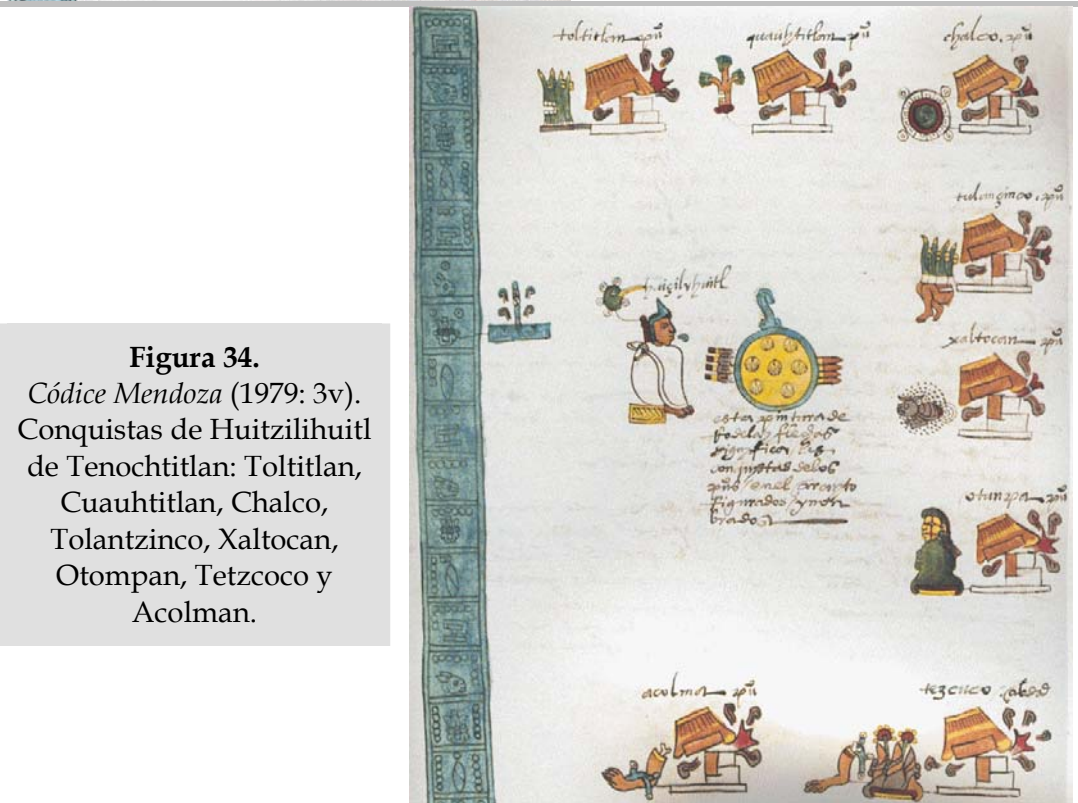 Figura 34.
Códice Mendoza (1979: 3v).
Conquistas de Huitzilihuitl
de Tenochtitlan: Toltitlan,
Cuauhtitlan, Chalco,
Tolantzinco, Xaltocan,
Otompan, Tetzcoco y
Acolman.
toltitlan puº
quauhtitlan puº
chalco. puº
tulancingo. puº
huiçilyhuitl
xaltocan puº
esta pintura de
significa las
conquistas delos
figurados y
brados
otunpa puº
acolma puº
tezcuco